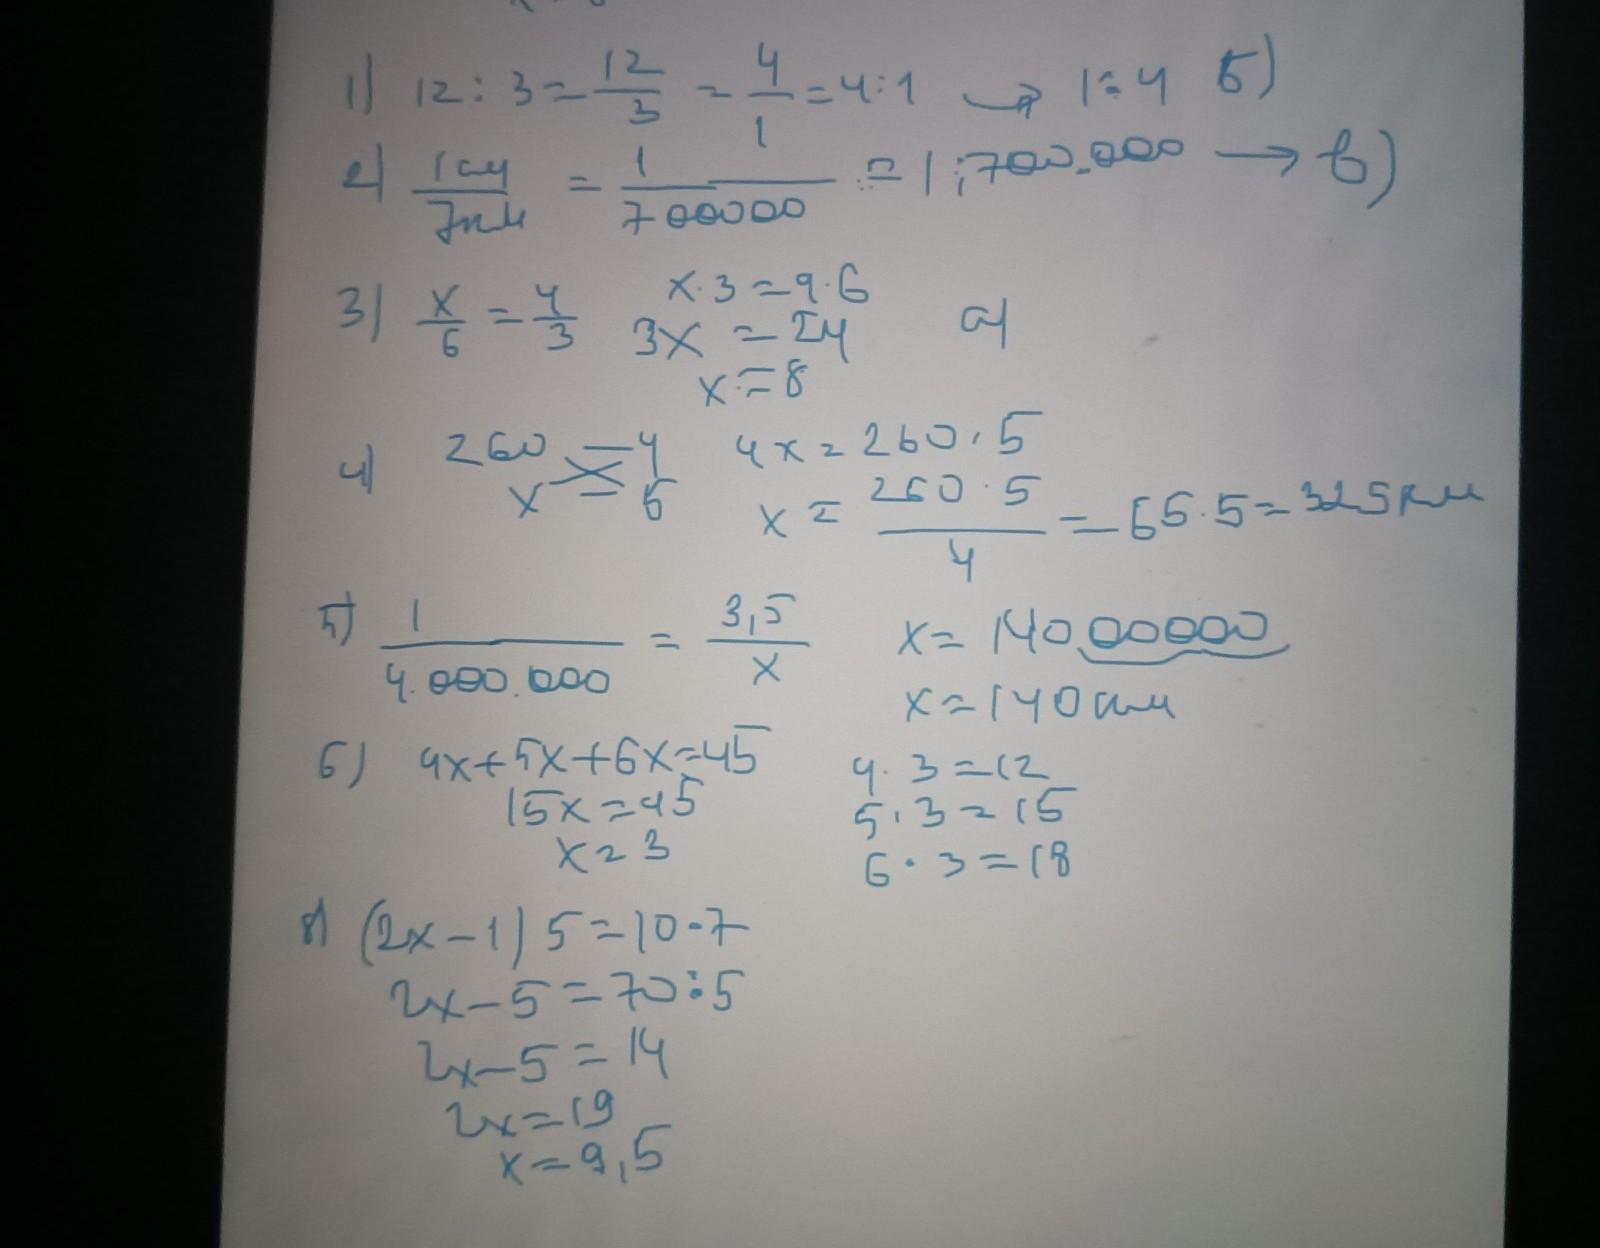 1) 12 : 3 = 12/3 = 4/1 = 4:1 → 1:4 б)
2) 1см/7км = 1/700000 = 1:700.000 → в)
3) x/6 = 4/3 x·3=4·6 а)
3x = 24
x = 8
4) 260 – 4 4x = 260·5
x – 5 x = 260·5/4 = 65·5 = 325км
5) 1/4.000.000 = 3,5/x x = 14000000
x = 140км
6) 4x+5x+6x=45 4·3=12
15x=45 5·3=15
x=3 6·3=18
8) (2x-1)5=10·7
2x-5=70:5
2x-5=14
2x=19
x=9,5